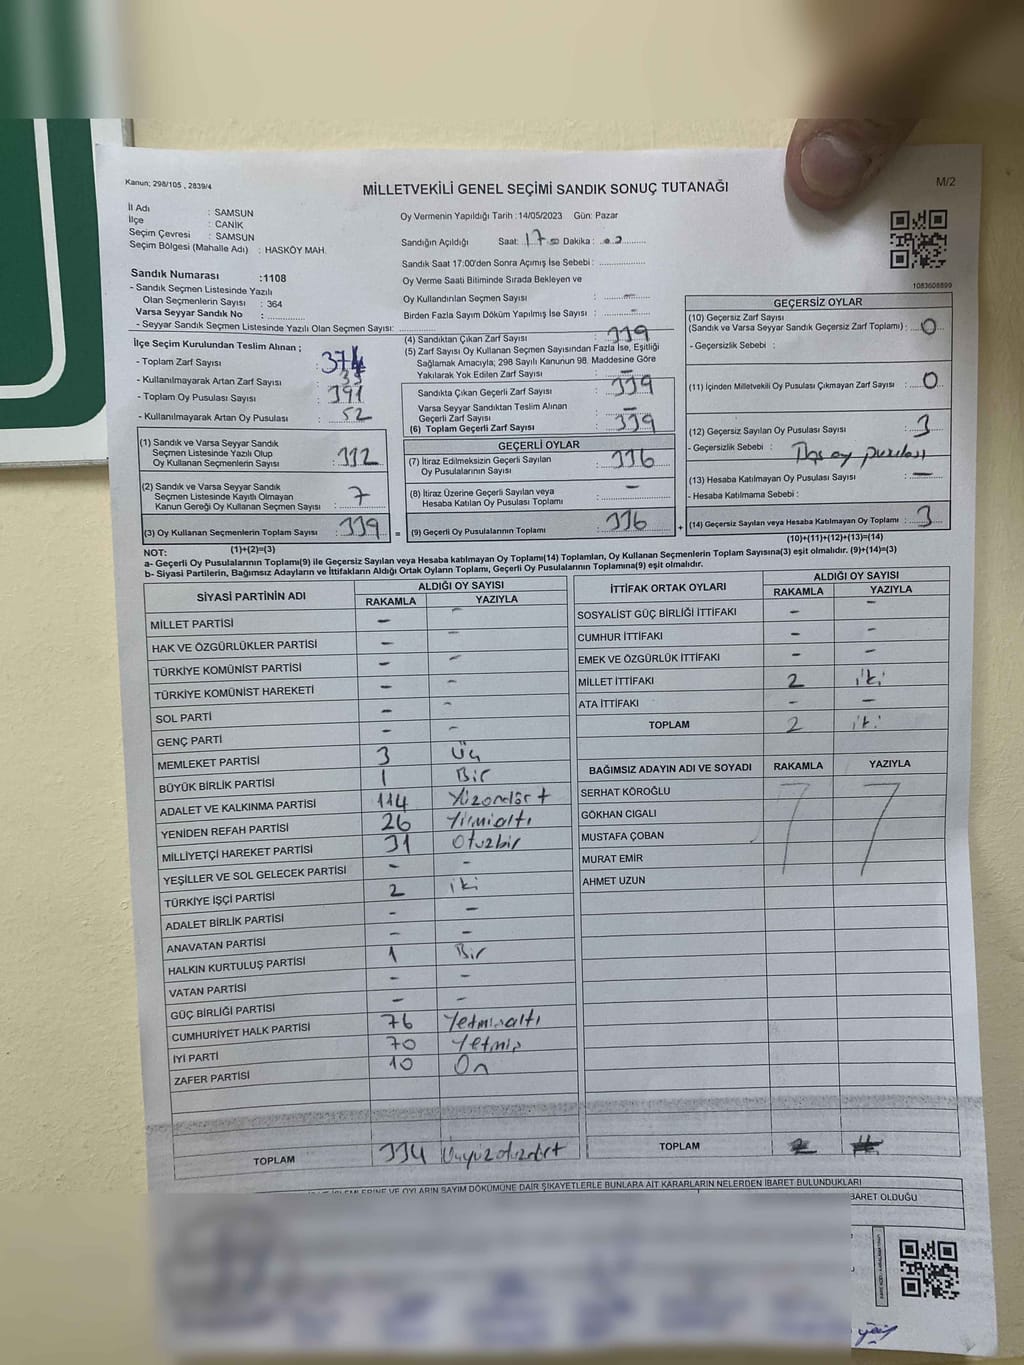 Kanun; 298/105 , 2839/4
MİLLETVEKİLİ GENEL SEÇİMİ SANDIK SONUÇ TUTANAĞI
M/2
İl Adı : SAMSUN
İlçe : CANİK
Seçim Çevresi : SAMSUN
Seçim Bölgesi (Mahalle Adı) : HASKÖY MAH.
Sandık Numarası :1108
- Sandık Seçmen Listesinde Yazılı
Olan Seçmenlerin Sayısı : 364
Varsa Seyyar Sandık No :
- Seyyar Sandık Seçmen Listesinde Yazılı Olan Seçmen Sayısı:
Oy Vermenin Yapıldığı Tarih : 14/05/2023 Gün: Pazar
Sandığın Açıldığı Saat: 17 Dakika :
Sandık Saat 17:00'den Sonra Açımış İse Sebebi :
Oy Verme Saati Bitiminde Sırada Bekleyen ve
Oy Kullandırılan Seçmen Sayısı : -
Birden Fazla Sayım Döküm Yapılmış İse Sayısı : -
1083608899
İlçe Seçim Kurulundan Teslim Alınan ;
- Toplam Zarf Sayısı : 374
- Kullanılmayarak Artan Zarf Sayısı : 35
- Toplam Oy Pusulası Sayısı : 391
- Kullanılmayarak Artan Oy Pusulası : 52
(1) Sandık ve Varsa Seyyar Sandık
Seçmen Listesinde Yazılı Olup
Oy Kullanan Seçmenlerin Sayısı : 332
(2) Sandık ve Varsa Seyyar Sandık
Seçmen Listesinde Kayıtlı Olmayan
Kanun Gereği Oy Kullanan Seçmen Sayısı : 7
(3) Oy Kullanan Seçmenlerin Toplam Sayısı : 339
(1)+(2)=(3)
(4) Sandıktan Çıkan Zarf Sayısı : 339
(5) Zarf Sayısı Oy Kullanan Seçmen Sayısından Fazla İse, Eşitliği
Sağlamak Amacıyla; 298 Sayılı Kanunun 98. Maddesine Göre
Yakılarak Yok Edilen Zarf Sayısı : -
Sandıkta Çıkan Geçerli Zarf Sayısı : 339
Varsa Seyyar Sandıktan Teslim Alınan
Geçerli Zarf Sayısı : -
(6) Toplam Geçerli Zarf Sayısı : 339
GEÇERLİ OYLAR
(7) İtiraz Edilmeksizin Geçerli Sayılan
Oy Pusulalarının Sayısı : 336
(8) İtiraz Üzerine Geçerli Sayılan veya
Hesaba Katılan Oy Pusulası Toplamı : -
= (9) Geçerli Oy Pusulalarının Toplamı : 336
GEÇERSİZ OYLAR
(10) Geçersiz Zarf Sayısı
(Sandık ve Varsa Seyyar Sandık Geçersiz Zarf Toplamı) : 0
- Geçersizlik Sebebi :
(11) İçinden Milletvekili Oy Pusulası Çıkmayan Zarf Sayısı : 0
(12) Geçersiz Sayılan Oy Pusulası Sayısı : 3
- Geçersizlik Sebebi : Boş oy pusulası
(13) Hesaba Katılmayan Oy Pusulası Sayısı : -
- Hesaba Katılmama Sebebi :
+ (14) Geçersiz Sayılan veya Hesaba Katılmayan Oy Toplamı : 3
(10)+(11)+(12)+(13)=(14)
NOT:
a- Geçerli Oy Pusulalarının Toplamı(9) ile Geçersiz Sayılan veya Hesaba katılmayan Oy Toplamı(14) Toplamları, Oy Kullanan Seçmenlerin Toplam Sayısına(3) eşit olmalıdır. (9)+(14)=(3)
b- Siyasi Partilerin, Bağımsız Adayların ve İttifakların Aldığı Ortak Oyların Toplamı, Geçerli Oy Pusulalarının Toplamına(9) eşit olmalıdır.
SİYASİ PARTİNİN ADI ALDIĞI OY SAYISI
RAKAMLA YAZIYLA
MİLLET PARTİSİ - -
HAK VE ÖZGÜRLÜKLER PARTİSİ - -
TÜRKİYE KOMÜNİST PARTİSİ - -
TÜRKİYE KOMÜNİST HAREKETİ - -
SOL PARTİ - -
GENÇ PARTİ - -
MEMLEKET PARTİSİ 3 Üç
BÜYÜK BİRLİK PARTİSİ 1 Bir
ADALET VE KALKINMA PARTİSİ 114 Yüzondört
YENİDEN REFAH PARTİSİ 26 Yirmialtı
MİLLİYETÇİ HAREKET PARTİSİ 31 Otuzbir
YEŞİLLER VE SOL GELECEK PARTİSİ - -
TÜRKİYE İŞÇİ PARTİSİ 2 iki
ADALET BİRLİK PARTİSİ - -
ANAVATAN PARTİSİ - -
HALKIN KURTULUŞ PARTİSİ 1 Bir
VATAN PARTİSİ - -
GÜÇ BİRLİĞİ PARTİSİ - -
CUMHURİYET HALK PARTİSİ 76 Yetmişaltı
İYİ PARTİ 70 Yetmiş
ZAFER PARTİSİ 10 On
TOPLAM 334 Üçyüzotuzdört
İTTİFAK ORTAK OYLARI ALDIĞI OY SAYISI
RAKAMLA YAZIYLA
SOSYALİST GÜÇ BİRLİĞİ İTTİFAKI - -
CUMHUR İTTİFAKI - -
EMEK VE ÖZGÜRLÜK İTTİFAKI - -
MİLLET İTTİFAKI 2 iki
ATA İTTİFAKI - -
TOPLAM 2 iki
BAĞIMSIZ ADAYIN ADI VE SOYADI RAKAMLA YAZIYLA
SERHAT KÖROĞLU
GÖKHAN CIGALI
MUSTAFA ÇOBAN
MURAT EMİR
AHMET UZUN
TOPLAM
İŞLEMLERİNE VE OYLARIN SAYIM DÖKÜMÜNE DAİR ŞİKAYETLERLE BUNLARA AİT KARARLARIN NELERDEN İBARET BULUNDUKLARI
BARET OLDUĞU